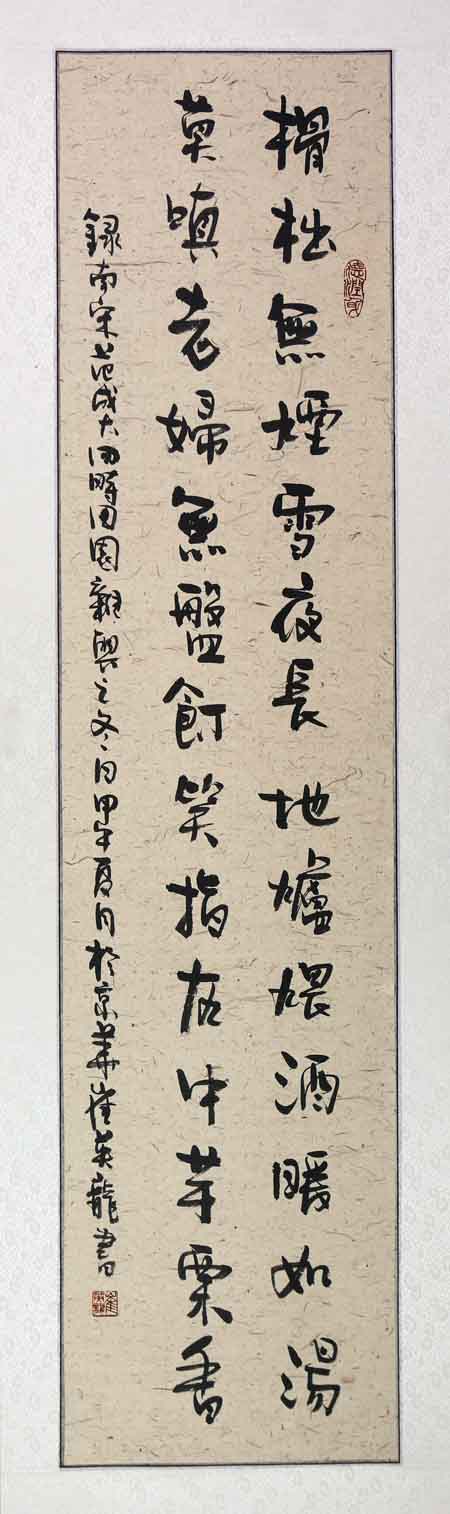 榾柮無煙雪夜長地爐煨酒暖如湯
莫嗔老婦無盤飣笑指灰中芋栗香
録南宋范成大四時田園雜興之冬日甲午夏月於京華崔英龍書